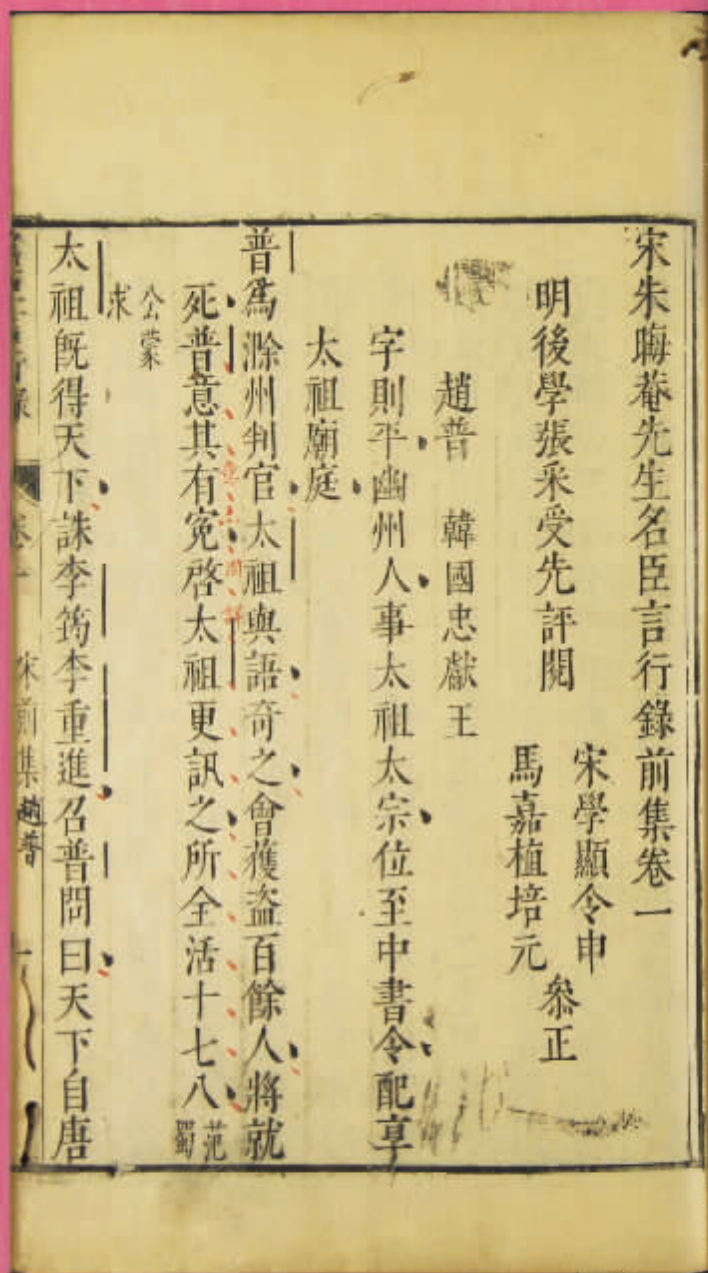 宋朱晦菴先生名臣言行錄前集卷一
明後學張采受先評閱
宋學顯令申
馬嘉植培元
叅正
趙普　韓國忠獻王
字則平幽州人事太祖太宗位至中書令配享
太祖廟庭
普爲滁州判官太祖與語奇之會獲盜百餘人將就
死普意其有寃啓太祖更訊之所全活十七八
范蜀
公蒙
求
太祖旣得天下誅李筠李重進召普問曰天下自唐
卷一　宋前集趙普　一